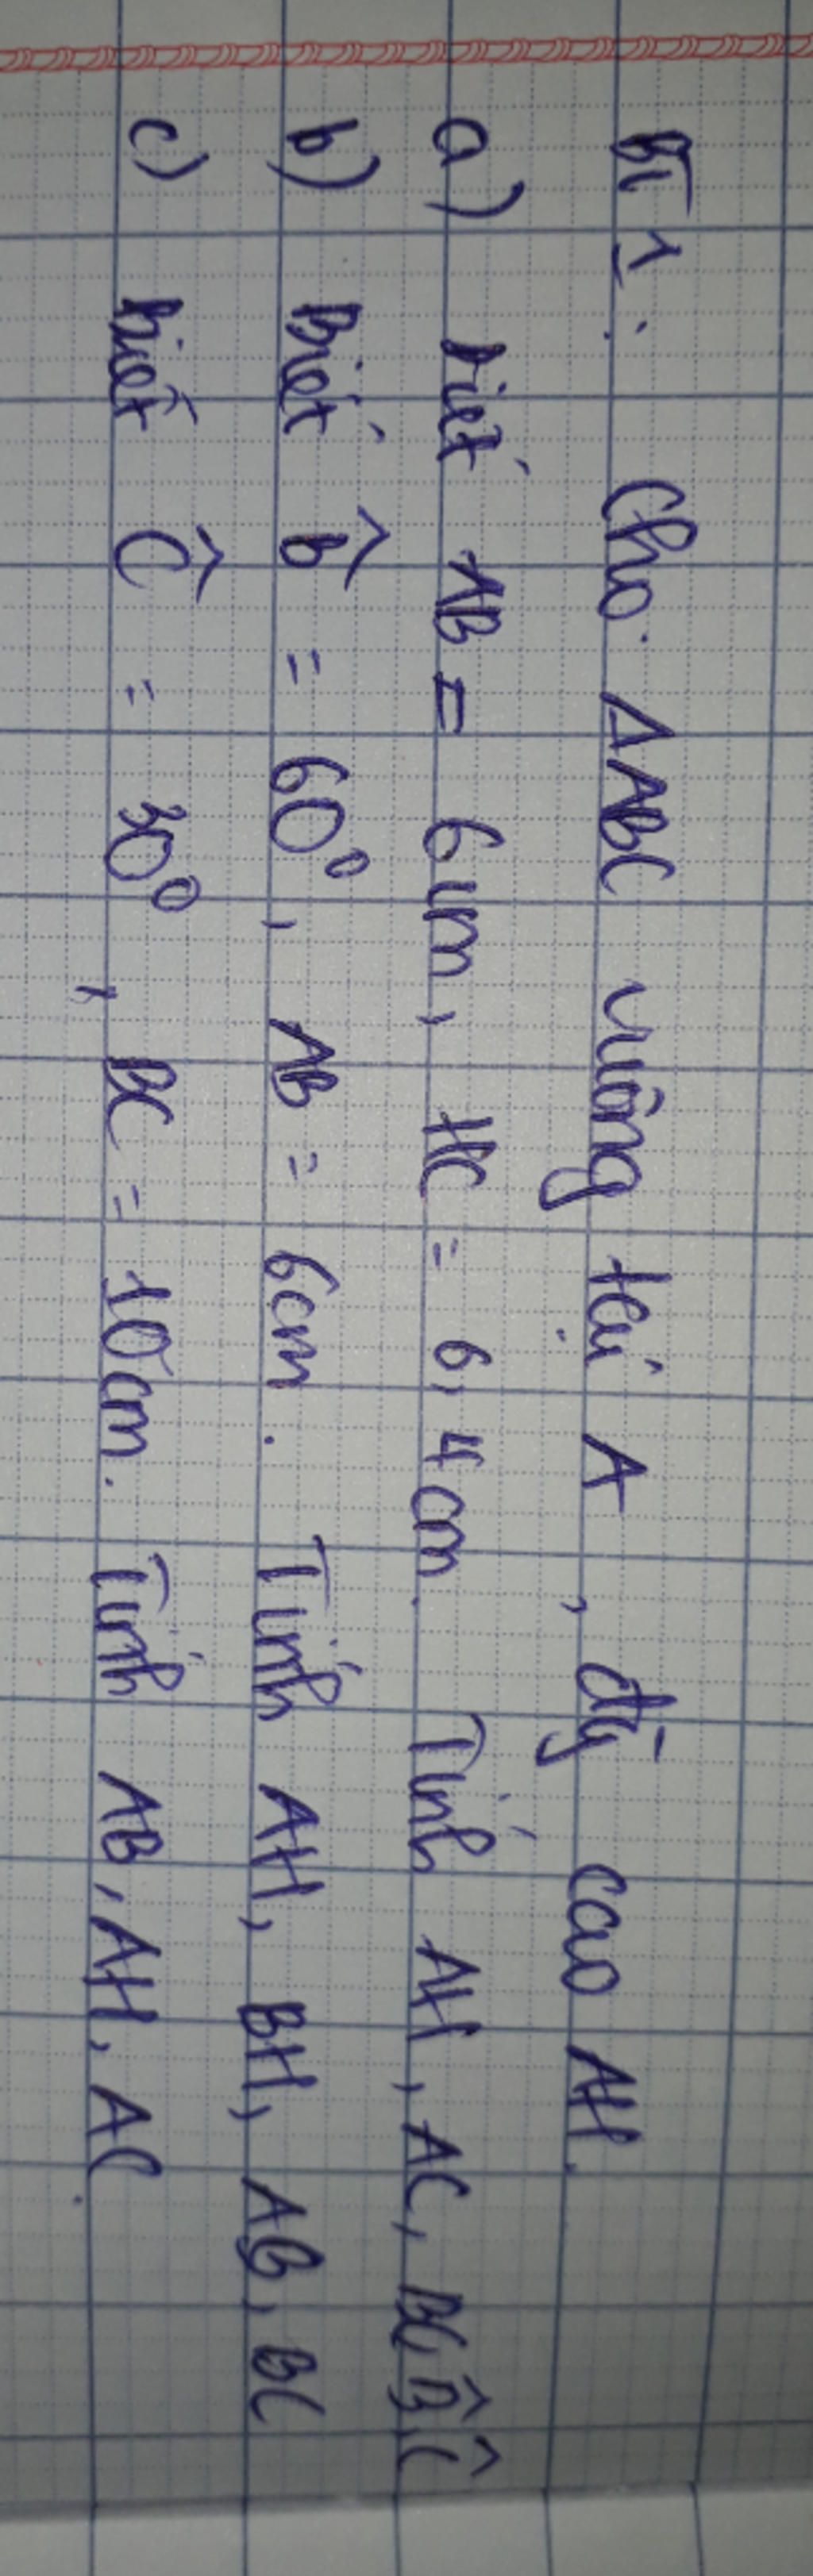 BT 1: Cho ΔABC vuông tại A, đg cao AH.
a) biết AB = 6cm, HC = 6,4cm. Tính AH, AC, BC, B̂, Ĉ
b) Biết B̂ = 60⁰, AB = 6cm. Tính AH, BH, AC, BC
c) biết Ĉ = 30⁰, BC = 10cm. Tính AB, AH, AC.